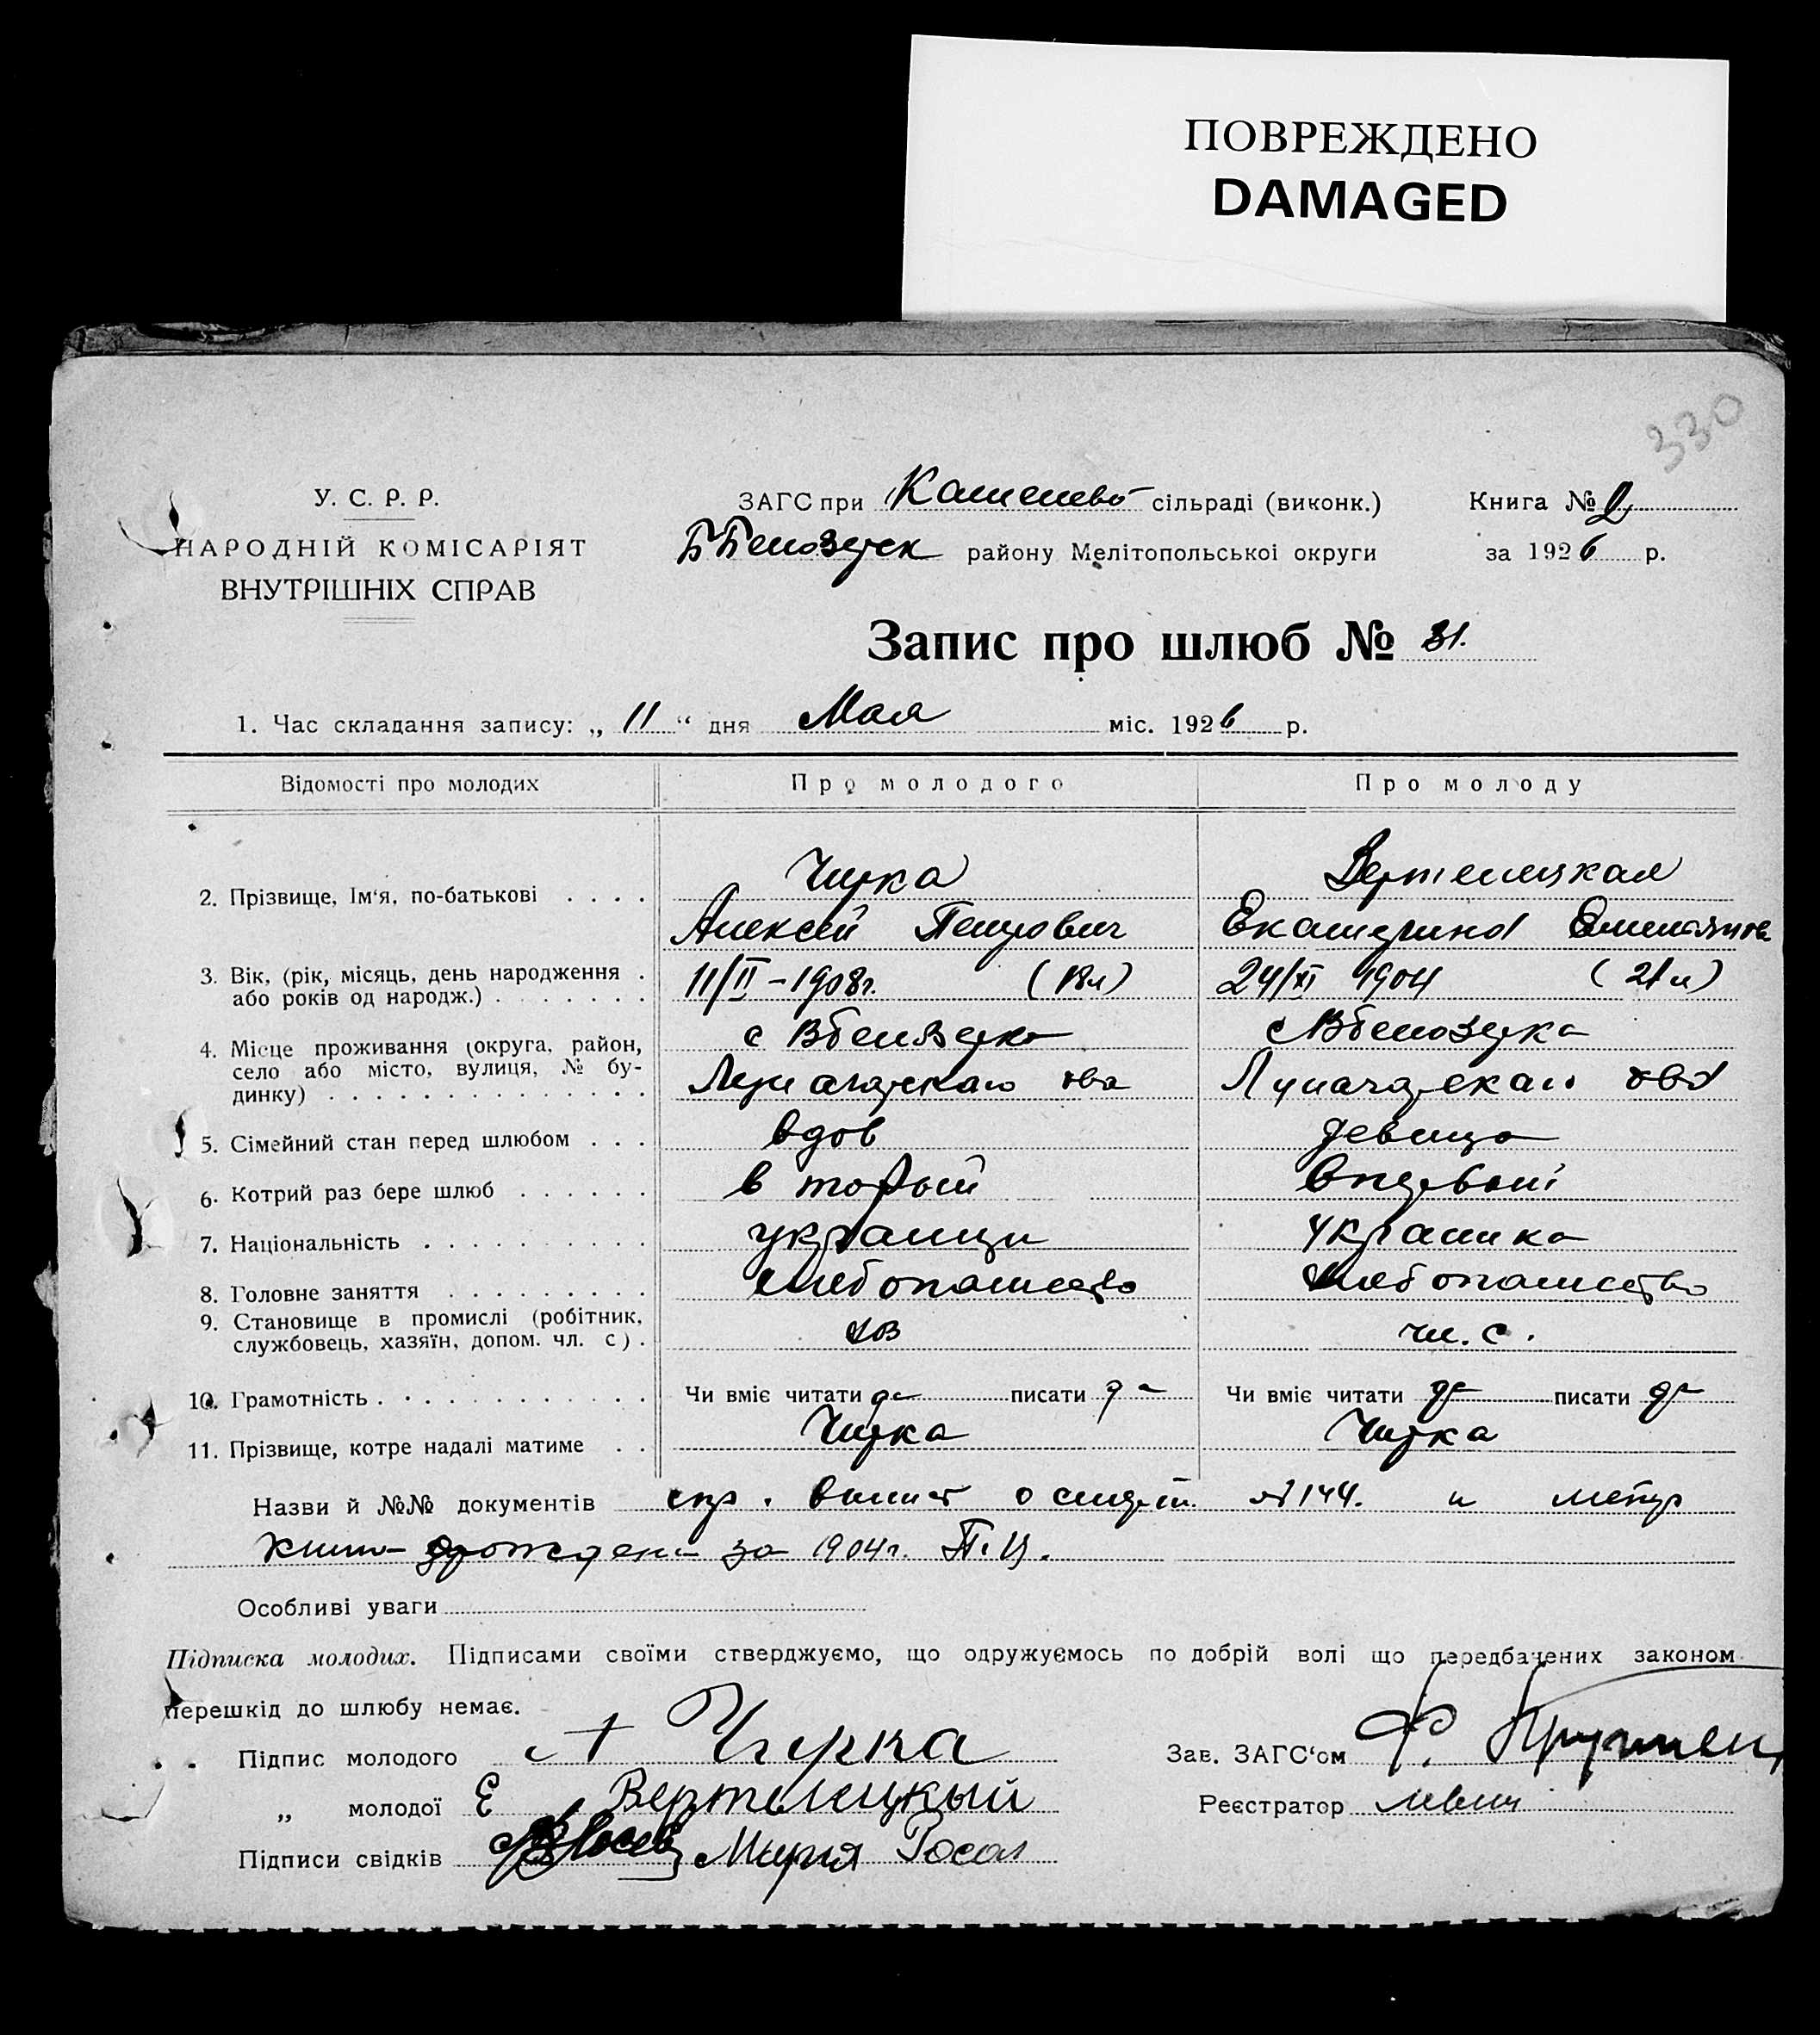 ПОВРЕЖДЕНО
DAMAGED
330
У. С. Р. Р.
НАРОДНІЙ КОМІСАРІЯТ
ВНУТРІШНІХ СПРАВ
ЗАГС при сільраді (виконк.) Книга № 2
району Мелітопольської округи за 1926 р.
Запис про шлюб № 31.
1. Час складання запису: „ 11 “ дня Мая міс. 1926 р.
Відомості про молодих Про молодого Про молоду
2. Прізвище, Ім‘я, по-батькові . . . . Чирка Вертелецкая
Алексей Петрович Екатерина
3. Вік, (рік, місяць, день народження . 11/II - 1908г. (18л) 24/XI 1904 (21л)
або років од народж.) . . . . . . .
4. Місце проживання (округа, район, с Вбелозерка с Вбелозерка
село або місто, вулиця, № бу-
динку) . . . . . . . . . . . . . . Луначарскаго Луначарскаго
5. Сімейний стан перед шлюбом . . . вдов девица
6. Котрий раз бере шлюб . . . . . . вторый впервый
7. Національність . . . . . . . . . . украинец украинка
8. Головне заняття . . . . . . . . . хлебопашество хлебопашество
9. Становище в промислі (робітник,
службовець, хазяїн, допом. чл. с) . хоз чл. с.
10. Грамотність . . . . . . . . . . . Чи вміє читати да писати да Чи вміє читати да писати да
11. Прізвище, котре надалі матиме . . Чирка Чирка
Назви й №№ документів о смерт. №144. и метр
книга рожден за 1904г. П.Ц.
Особливі уваги
Підписка молодих. Підписами своїми стверджуємо, що одружуємось по добрій волі що передбачених законом
перешкід до шлюбу немає.
Підпис молодого А Чирка Зав. ЗАГС‘ом Ф.
„ молодої Е Вертелецкый Реєстратор
Підписи свідків Мария Росол